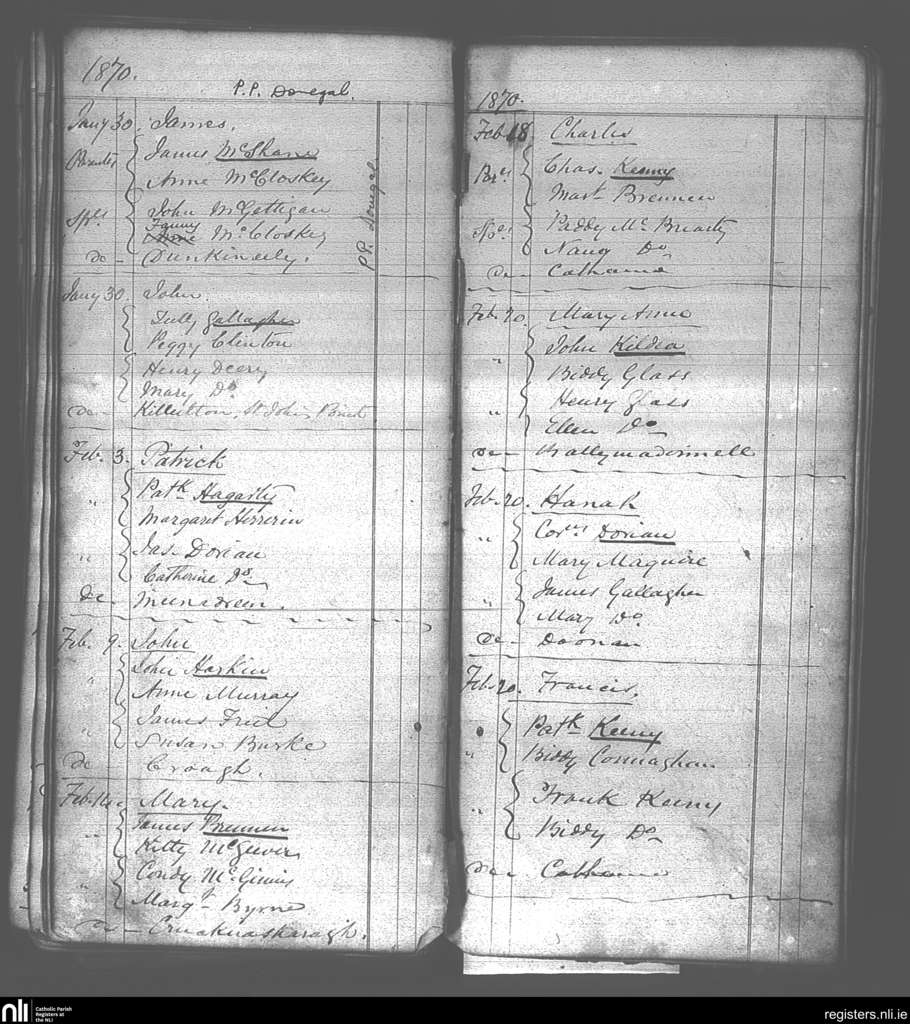 1870.
P.P. Donegal.
Jany 30. James.
Parents James McShane
Anne McCloskey
Sps. John McGettigan
Fanny
Anne McCloskey
de - Dunkineely.
P.P. Donegal
Jany 30. John.
Tully Gallagher
Peggy Clinton
Henry Deery
Mary Do
de - St Johns Point
Feb. 3. Patrick
" Patk Hagarty
Margaret
" Jas. Dorian
Catherine Do
de - Meenadreen.
Feb. 9. John
" John Harkin
Anne Murray
" James Friel
Susan Burke
de Croagh.
Feb. 14. Mary.
" James Brennen
Kitty
" Condy McGinnis
Margt Byrne
de -
1870.
Feb 18. Charles
Par. Chas. Keeny
Mart. Brennen
Sps. Paddy Mc Brearty
Do
de -
Feb. 20. Mary Anne
" John Kildea
Biddy Glass
" Henry Glass
Ellen Do
de - Ballymadonnell
Feb. 20. Hanah
" Cors. Dorian
Mary Maguire
" James Gallagher
Mary Do.
de - Doonan
Feb. 20. Francis.
" Patk Keeny
Biddy Connaghan
" Frank Keeny
Biddy Do
de -
nli Catholic Parish
Registers at
the NLI
registers.nli.ie